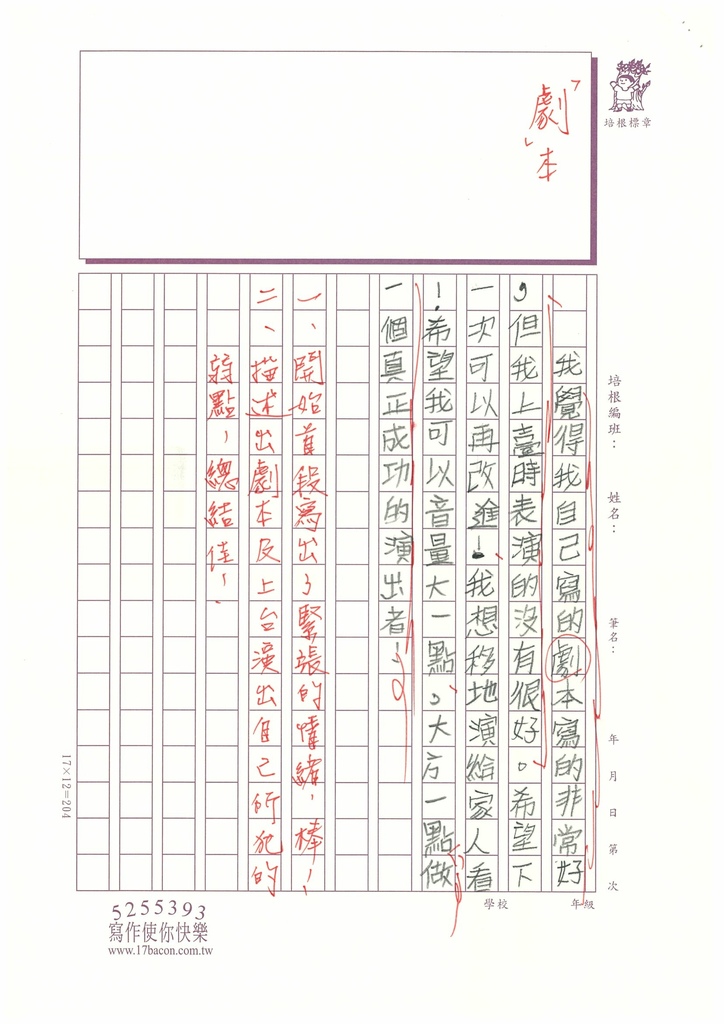 「劇」本
培根標章
培根編班：　姓名：　筆名：　年　月　日　第　次
學校　年級
我覺得我自己寫的劇本寫的非常好
，但我上臺時表演的沒有很好。希望下
一次可以再改進！、我想移地演給家人看
！希望我可以音量大一點。大方一點做
一個真正成功的演出者！
一、開始首段寫出了緊張的情緒，棒！
二、描述出劇本及上台演出自己所犯的
弱點，總結佳！
17×12=204
5255393
寫作使你快樂
www.17bacon.com.tw